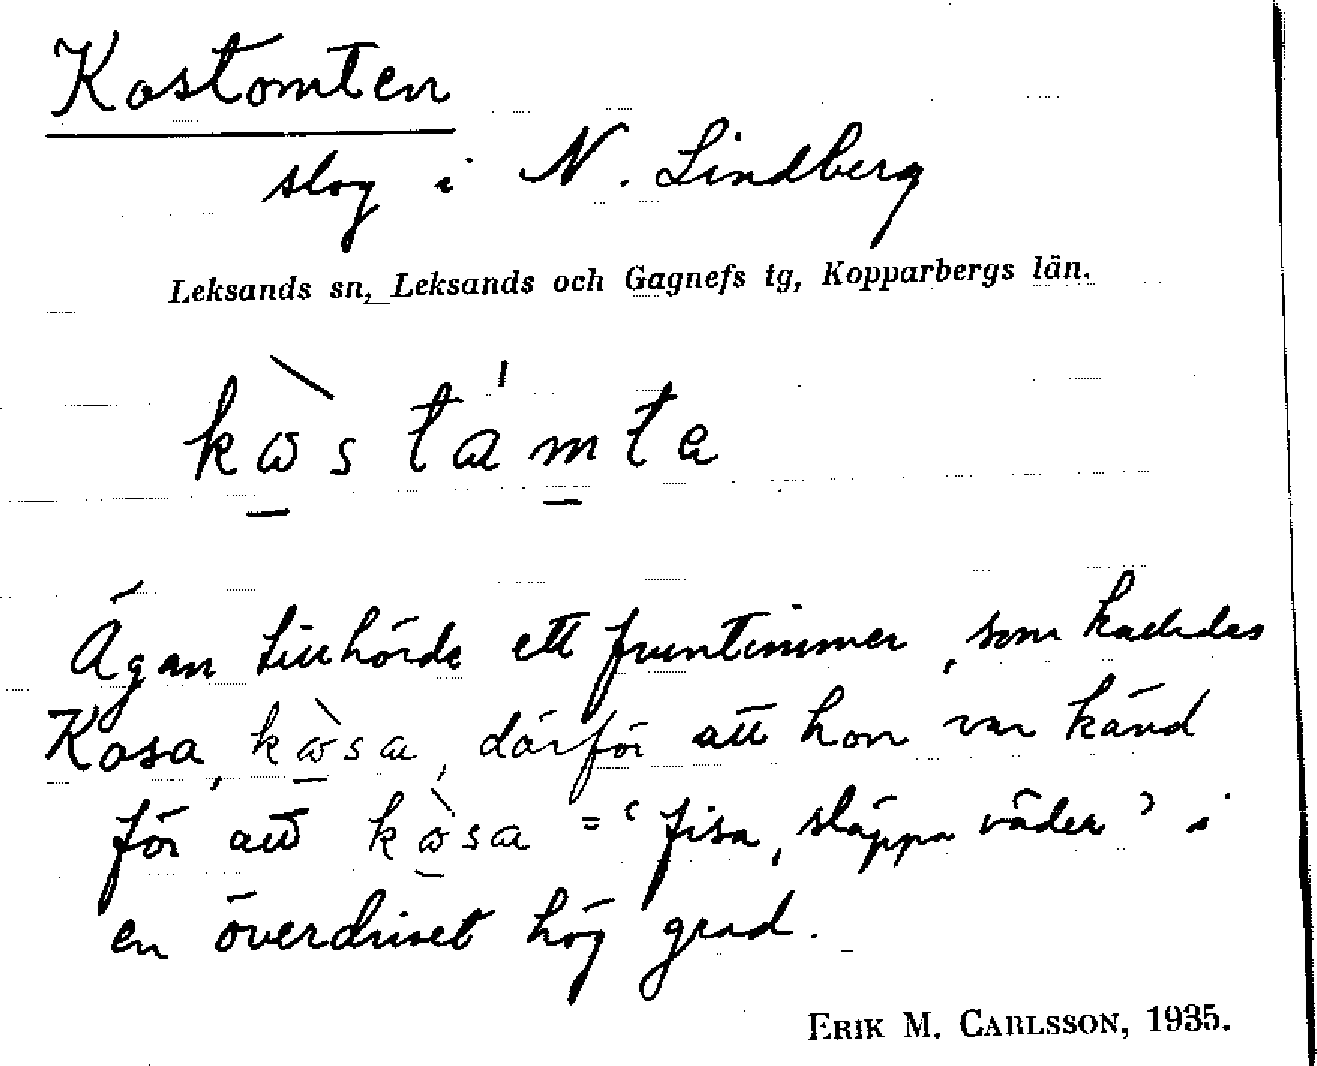 Kostomten
slog i N. Lindberg
Leksands sn, Leksands och Gagnefs tg, Kopparbergs län.
Ägan tillhörde ett fruntimmer, som kallades
Kosa, därför att hon var känd
för att = ‘fisa, släppa väder’ i
en överdrivet hög grad.
ERIK M. CARLSSON, 1935.